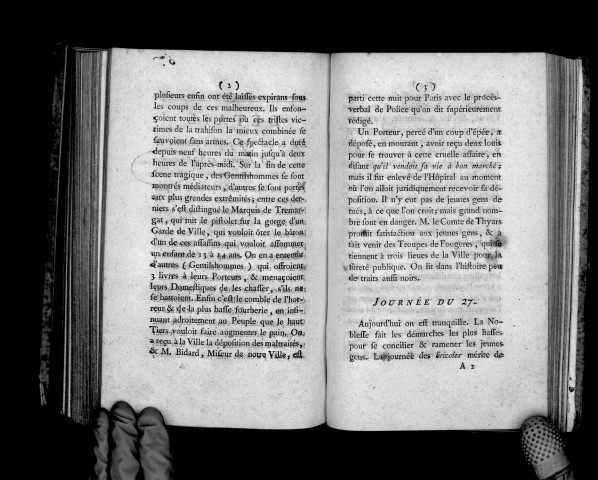 ( 2 )
plusieurs enfin ont été laissés expirans sous
les coups de ces malheureux. Ils enfon-
çoient toutes les portes où ces tristes vic-
times de la trahison la mieux combinée se
sauvoient sans armes. Ce spectacle a duré
depuis neuf heures du matin jusqu'à deux
heures de l'après-midi. Sur la fin de cette
scene tragique, des Gentilshommes se sont
montrés médiateurs, d'autres se sont portés
aux plus grandes extrêmités; entre ces der-
niers s'est distingué le Marquis de Tremar-
gat, qui mit le pistolet sur la gorge d'un
Garde de Ville, qui vouloit ôter le bâton
d'un de ces assassins qui vouloit assommer
un enfant de 13 à 14 ans. On en a entendu
d'autres ( Gentilshommes ) qui offroient
3 livres à leurs Porteurs, & menaçoient
leurs Domestiques de les chasser, s'ils ne
se battoient. Enfin c'est le comble de l'hor-
reur & de la plus basse fourberie, en insi-
nuant adroitement au Peuple que le haut
Tiers vouloit faire augmenter le pain. On
a reçu à la Ville la déposition des maltraités,
& M. Bidard, Miseur de notre Ville, est
( 3 )
parti cette nuit pour Paris avec le procès-
verbal de Police qu'on dit supérieurement
rédigé.
Un Porteur, percé d'un coup d'épée, a
déposé, en mourant, avoir reçu deux louis
pour se trouver à cette cruelle affaire, en
disant qu'il vendoit sa vie à bon marché;
mais il fut enlevé de l'Hôpital au moment
où l'on alloit juridiquement recevoir sa dé-
position. Il n'y eut pas de jeunes gens de
tués, à ce que l'on croit; mais grand nom-
bre sont en danger. M. le Comte de Thyars
promit satisfaction aux jeunes gens, & a
fait venir des Troupes de Fougeres, qui se
tiennent à trois lieues de la Ville pour la
sûreté publique. On lit dans l'histoire peu
de traits aussi noirs.
JOURNÉE DU 27.
Aujourd'hui on est tranquille. La No-
blesse fait les démarches les plus basses
pour se concilier & ramener les jeunes
gens. La journée des bricoles mérite de
A 2